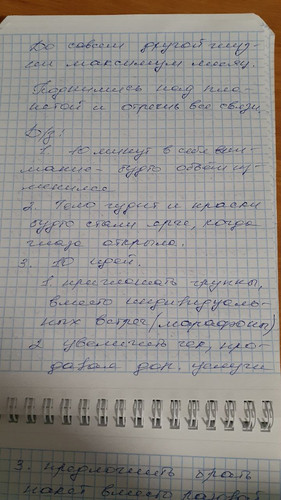 До совсем другой жиз-
ни максимум месяц.
Поднимись над пла-
нетой и отречь все связи.
Д/з:
1. 10 минут в себя вни-
мание - будто объём из-
менился
2. Тело гудит и краски
будто стали ярче, когда
глаза открыла.
3. 10 идей.
1. приглашать группы,
вместо индивидуаль-
ных встреч (марафоны)
2 увеличить чек, про-
давая доп. услуги
3. предложить брать
пакет вместо разовой